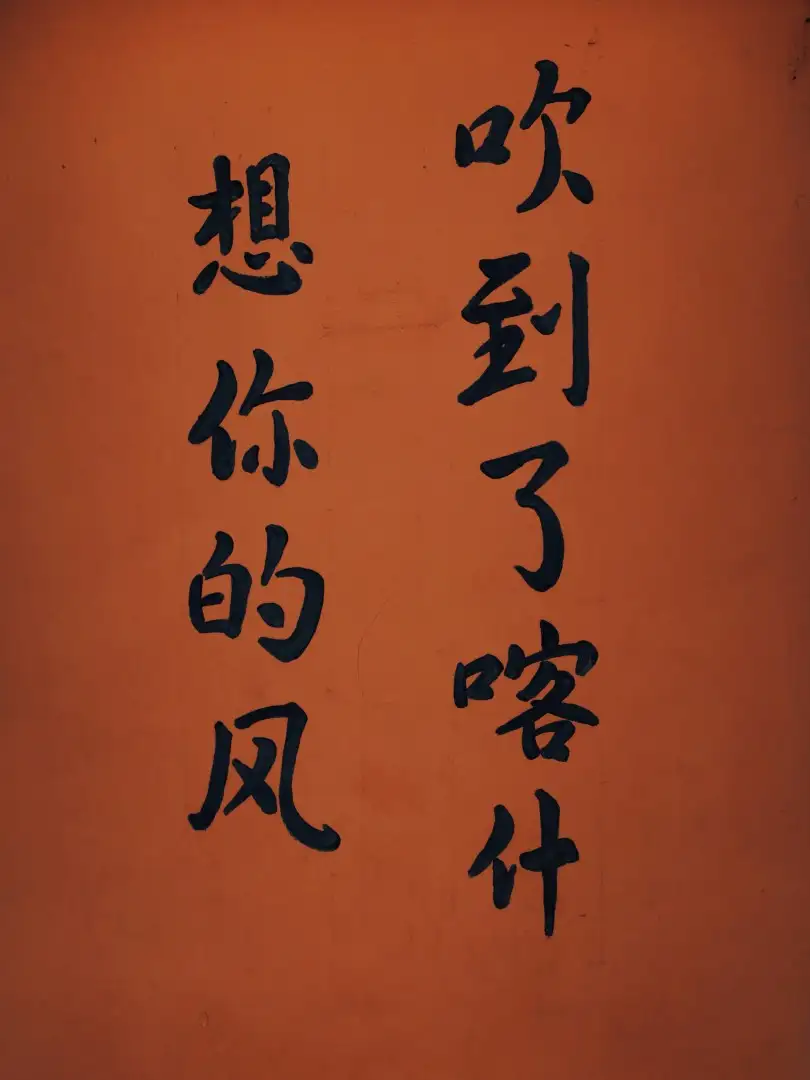 想你的风
吹到了喀什